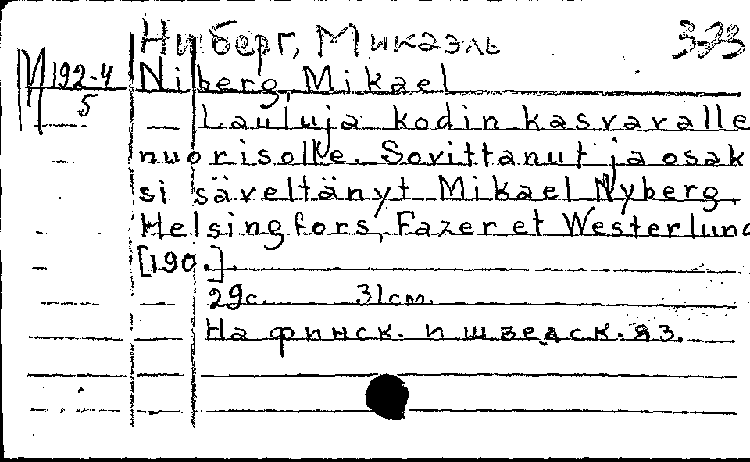 Ниберг, Микаэль 323
М 192-4 Niberg, Mikael
5 Lauluja kodin kasvavalle
nuorisolle. Sovittanut ja osak
si säveltänyt Mikael Nyberg.
Helsingfors, Fazer et Westerlund
[190.].
29с. 31см.
На финск. и шведск. яз.